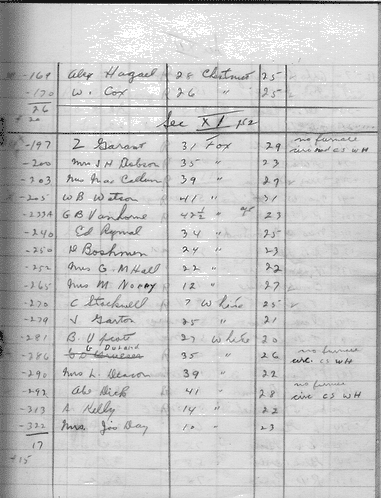 -169 Alex Hagael 28 Chestnut 25
-170 W. Cox 26 " 25
26
+ 20
Sec XI p2
-197 Z Garant 31 Fox 29 no furnace
-200 Mrs J H Dobson 35 " 23
-203 Mrs Mac 39 " 27
-205 W B Watson 41 " 31
-233A G B Vanhorne 42½ " 23
-240 Ed Rymal 34 " 25
-250 H Boshmen 24 " 23
-252 Mrs G. M Hall 22 " 22
-265 Mrs M 12 " 27
-270 C Stockwell 7 White 25
-279 J Garton 25 " 21
-281 B. 27 White 20
-286 35 " 26 no furnace
circ. CS WH
-290 Mrs L. Deacon 39 " 22
-292 Abe Dick 41 " 28 no furnace
circ CS WH
-313 A Kelly 14 " 22
-322 Mrs. Jos Day 10 " 23
17
+15